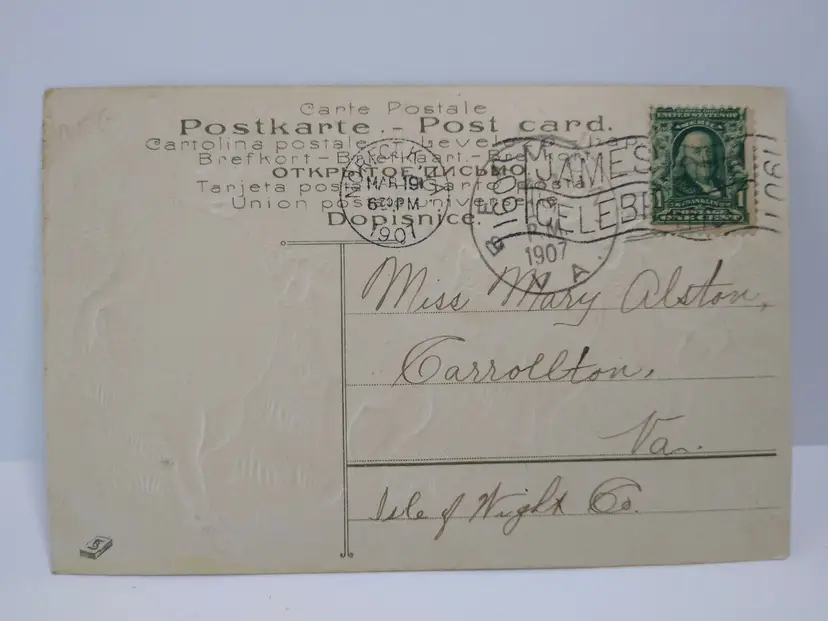 Carte Postale
Postkarte. - Post card.
Cartolina postale
Brefkort - Briefkaart -
ОТКРЫТОЕ ПИСЬМО
Tarjeta postal
Union postale universelle.
Dopisnice.
MAR 19
6 PM
1907
JAMES
CELEB
P.M.
1907
VA.
1907
UNITED STATES OF
AMERICA
FRANKLIN
1 1
POSTAGE
ONE CENT
Miss Mary Alston,
Carrollton,
Va.
Isle of Wight Co.